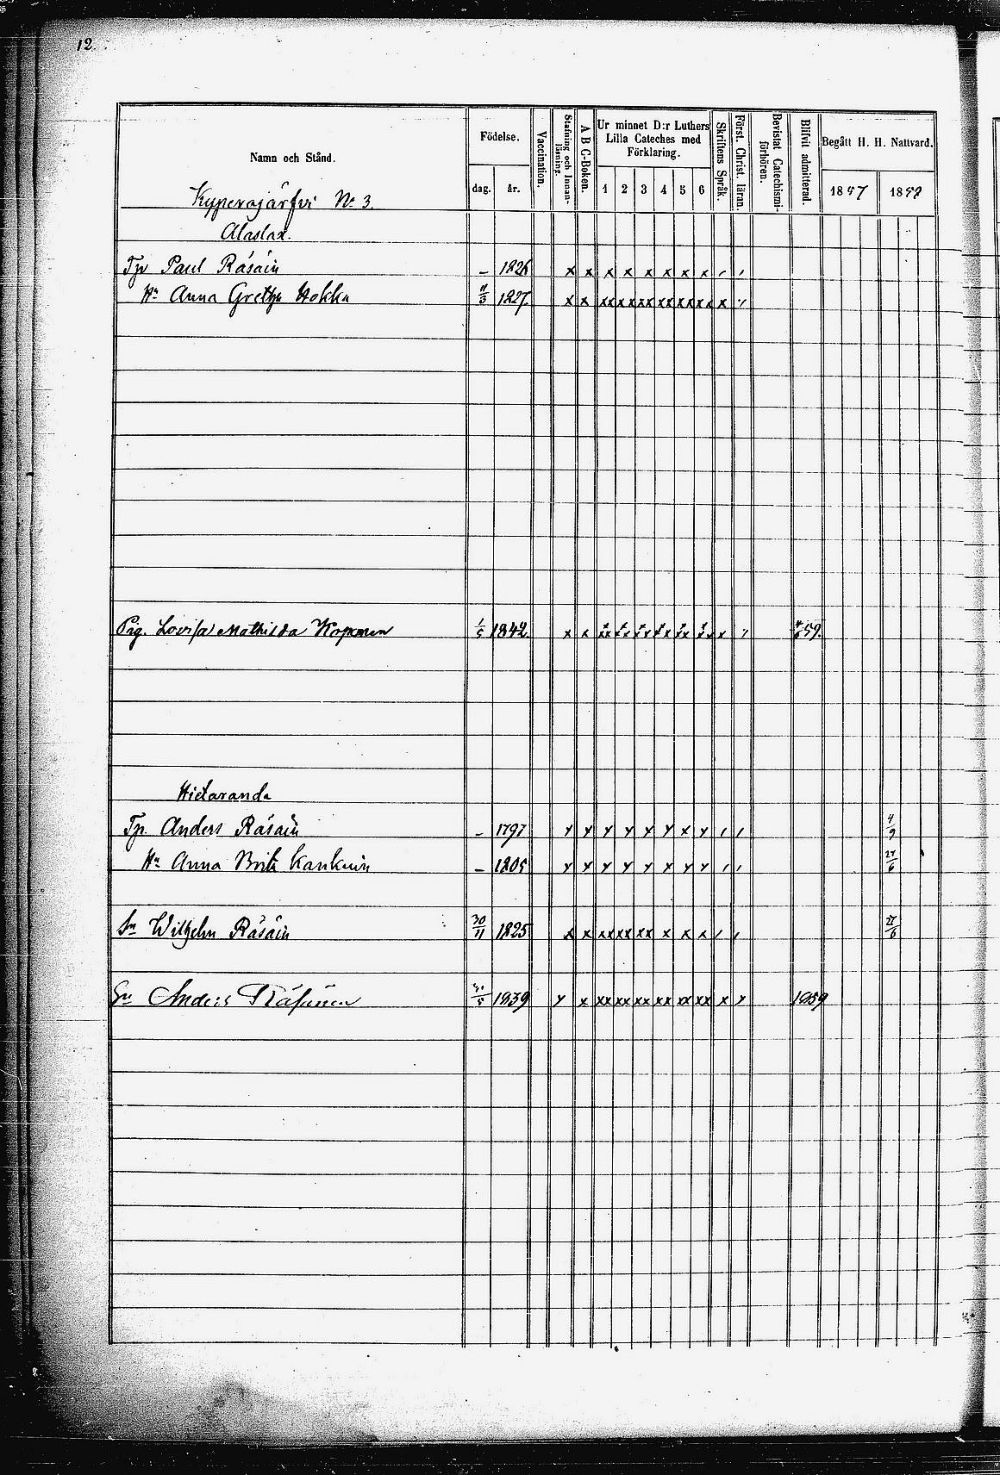 12.
Namn och Stånd.
Födelse.
dag.
år.
Vaccination.
Stafning och Innan-
läsning.
A B C-Boken.
Ur minnet D:r Luthers
Lilla Cateches med
Förklaring.
1 2 3 4 5 6
Skriftens Språk.
Först. Christ. läran.
Bevistat Catechismi-
förhören.
Blifvit admitterad.
Begått H. H. Nattvard.
1857 1858
N:o 3.
Tp Paul Räsäin – 1826 x x x x x x x x
Hu Anna Gretha Hokka 1827. x x xx xx xx xx xx xx x
Pig. Lovisa Mathilda 1/5 1842 x x 59.
Hietaranda
Tp. Anders Räsäin – 1797 4/9
Hu Anna Brita Kankuin – 1805
Sn Wilhelm Räsäin 30/11 1825 x x xx xx xx x x x
Anders Räsänen 1839 x xx xx xx xx xx xx x 1859